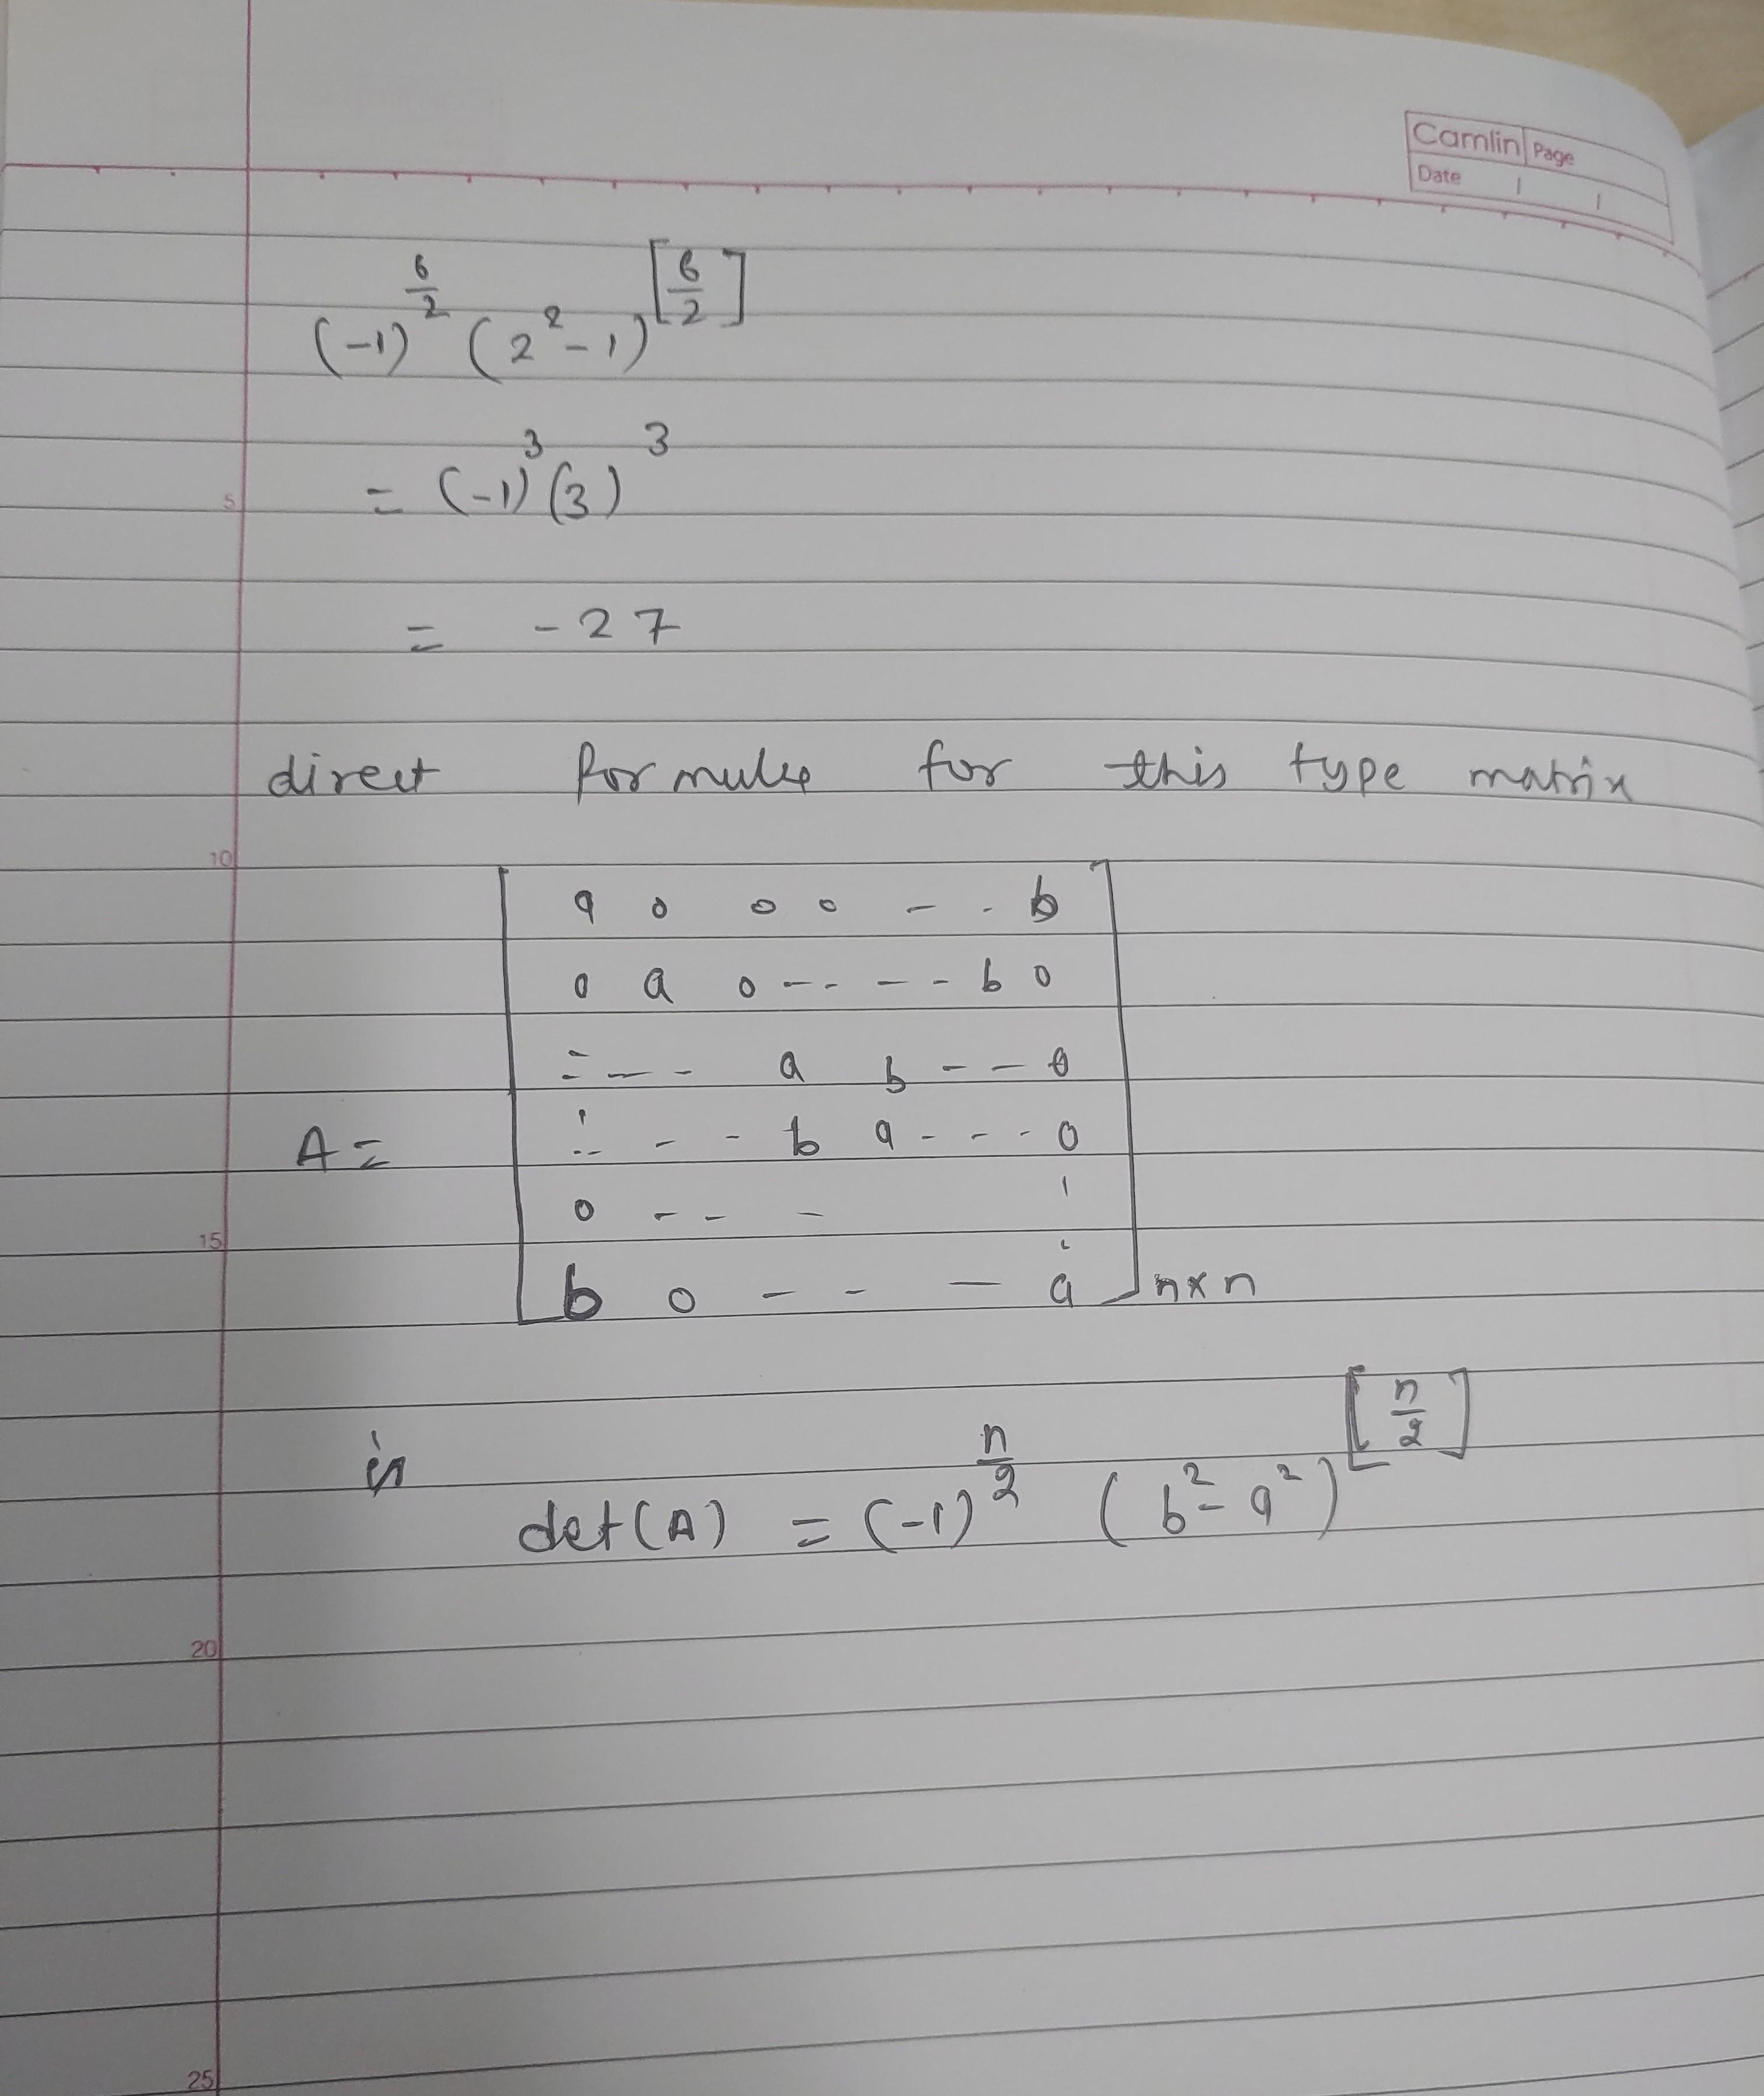 Camlin Page
Date / /
(-1)^{6/2} (2^2 - 1)^{[6/2]}
= (-1)^3 (3)^3
5
= - 27
direct formula for this type matrix
10
a 0 0 0 - - b
0 a 0 -- - - - b 0
: - - - a b - - 0
A = : - - - b a - - - 0
0 - - -
15
b 0 - - - a n×n
is
det(A) = (-1)^{n/2} (b^2 - a^2)^{[n/2]}
20
25